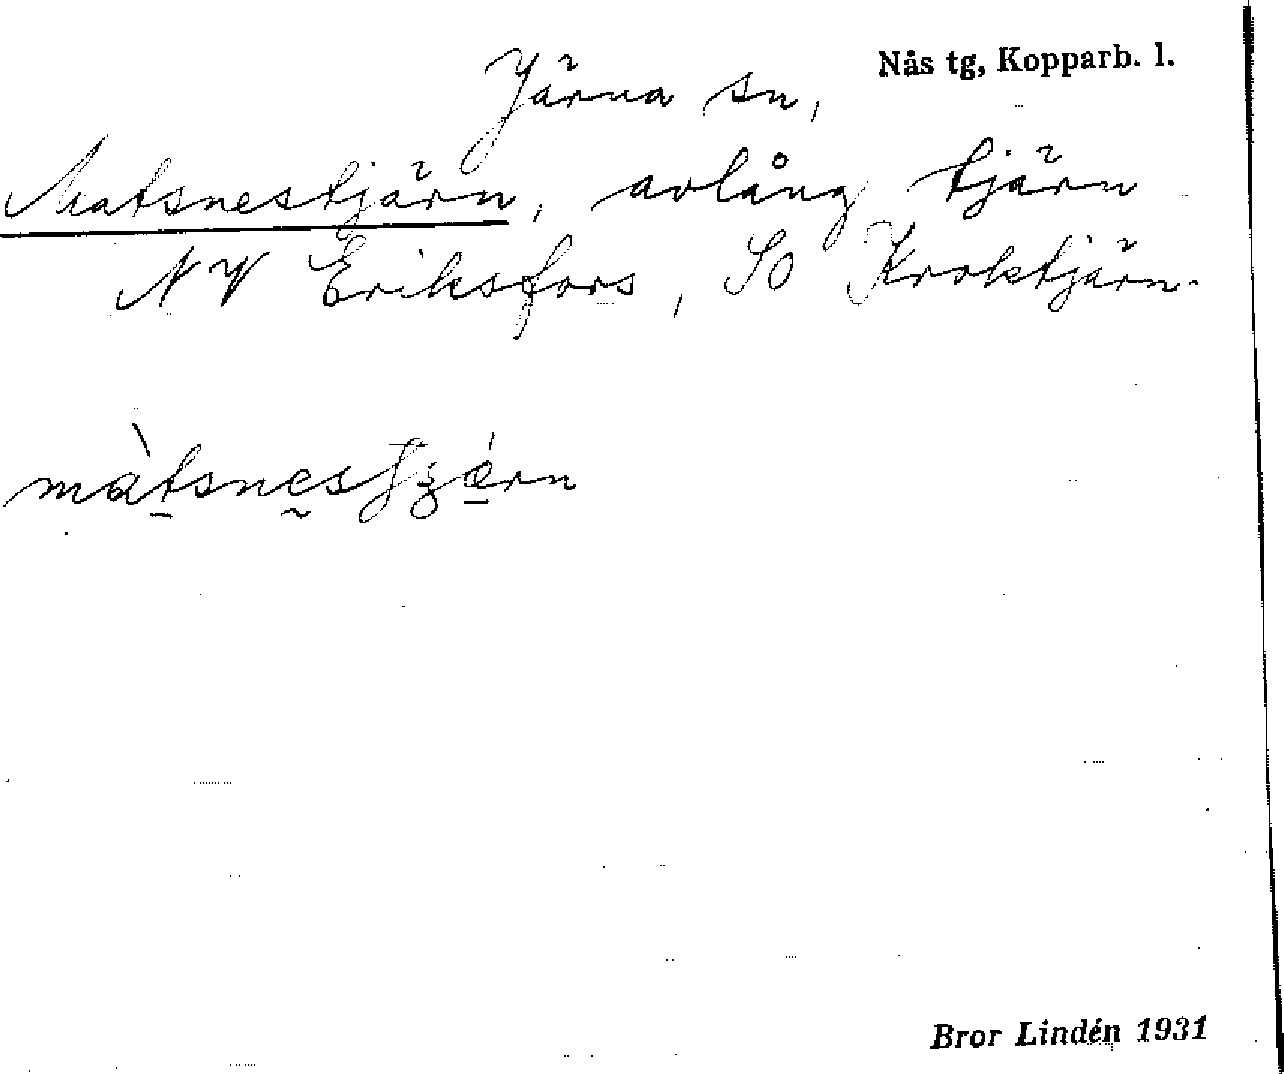 Järna sn, Nås tg, Kopparb. l.
Matsnestjärn, avlång tjärn
NV Eriksfors, SO Kroktjärn.
Bror Lindén 1931